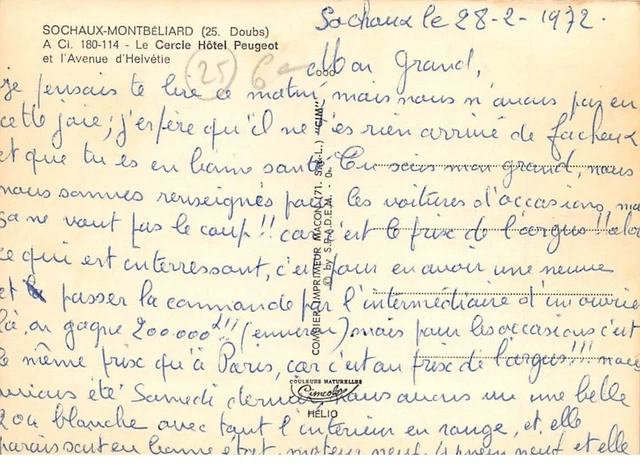 Sochaux le 28-2-1972.
SOCHAUX-MONTBÉLIARD (25. Doubs)
A Ci. 180-114 - Le Cercle Hôtel Peugeot
et l'Avenue d'Helvétie
25
6
Mon Grand,
je pensais te lire ce matin, mais nous n'avons pas eu
cette joie; j'espère qu'il ne t'es rien arrivé de facheux
et que tu es en bonne santé. Tu sais mon grand, nous
nous sommes renseignés pour les voitures d'occasions, mais
ça ne vaut pas le coup!! car c'est le prix de l'argus!! alors
ce qui est interressant, c'est pour en avoir une neuve
et passer la commande par l'intermédiaire d'un ouvrier
là, on gagne 200.000!!! (environ) mais pour les occasions c'est
le même prix qu'à Paris, car c'est au prix de l'argus!!! nous
avions été Samedi dernier, nous avons vu une belle
204 blanche avec tout l'intérieur en rouge, et, elle
paraissait en bonne état, moteur neuf, 4 pneus neuf et elle
COMBIER IMPRIMEUR MACON (71. S.-&-L.) "CIM"
© by S.P.A.D.E.M.
COULEURS NATURELLES
Cimcolor
HÉLIO